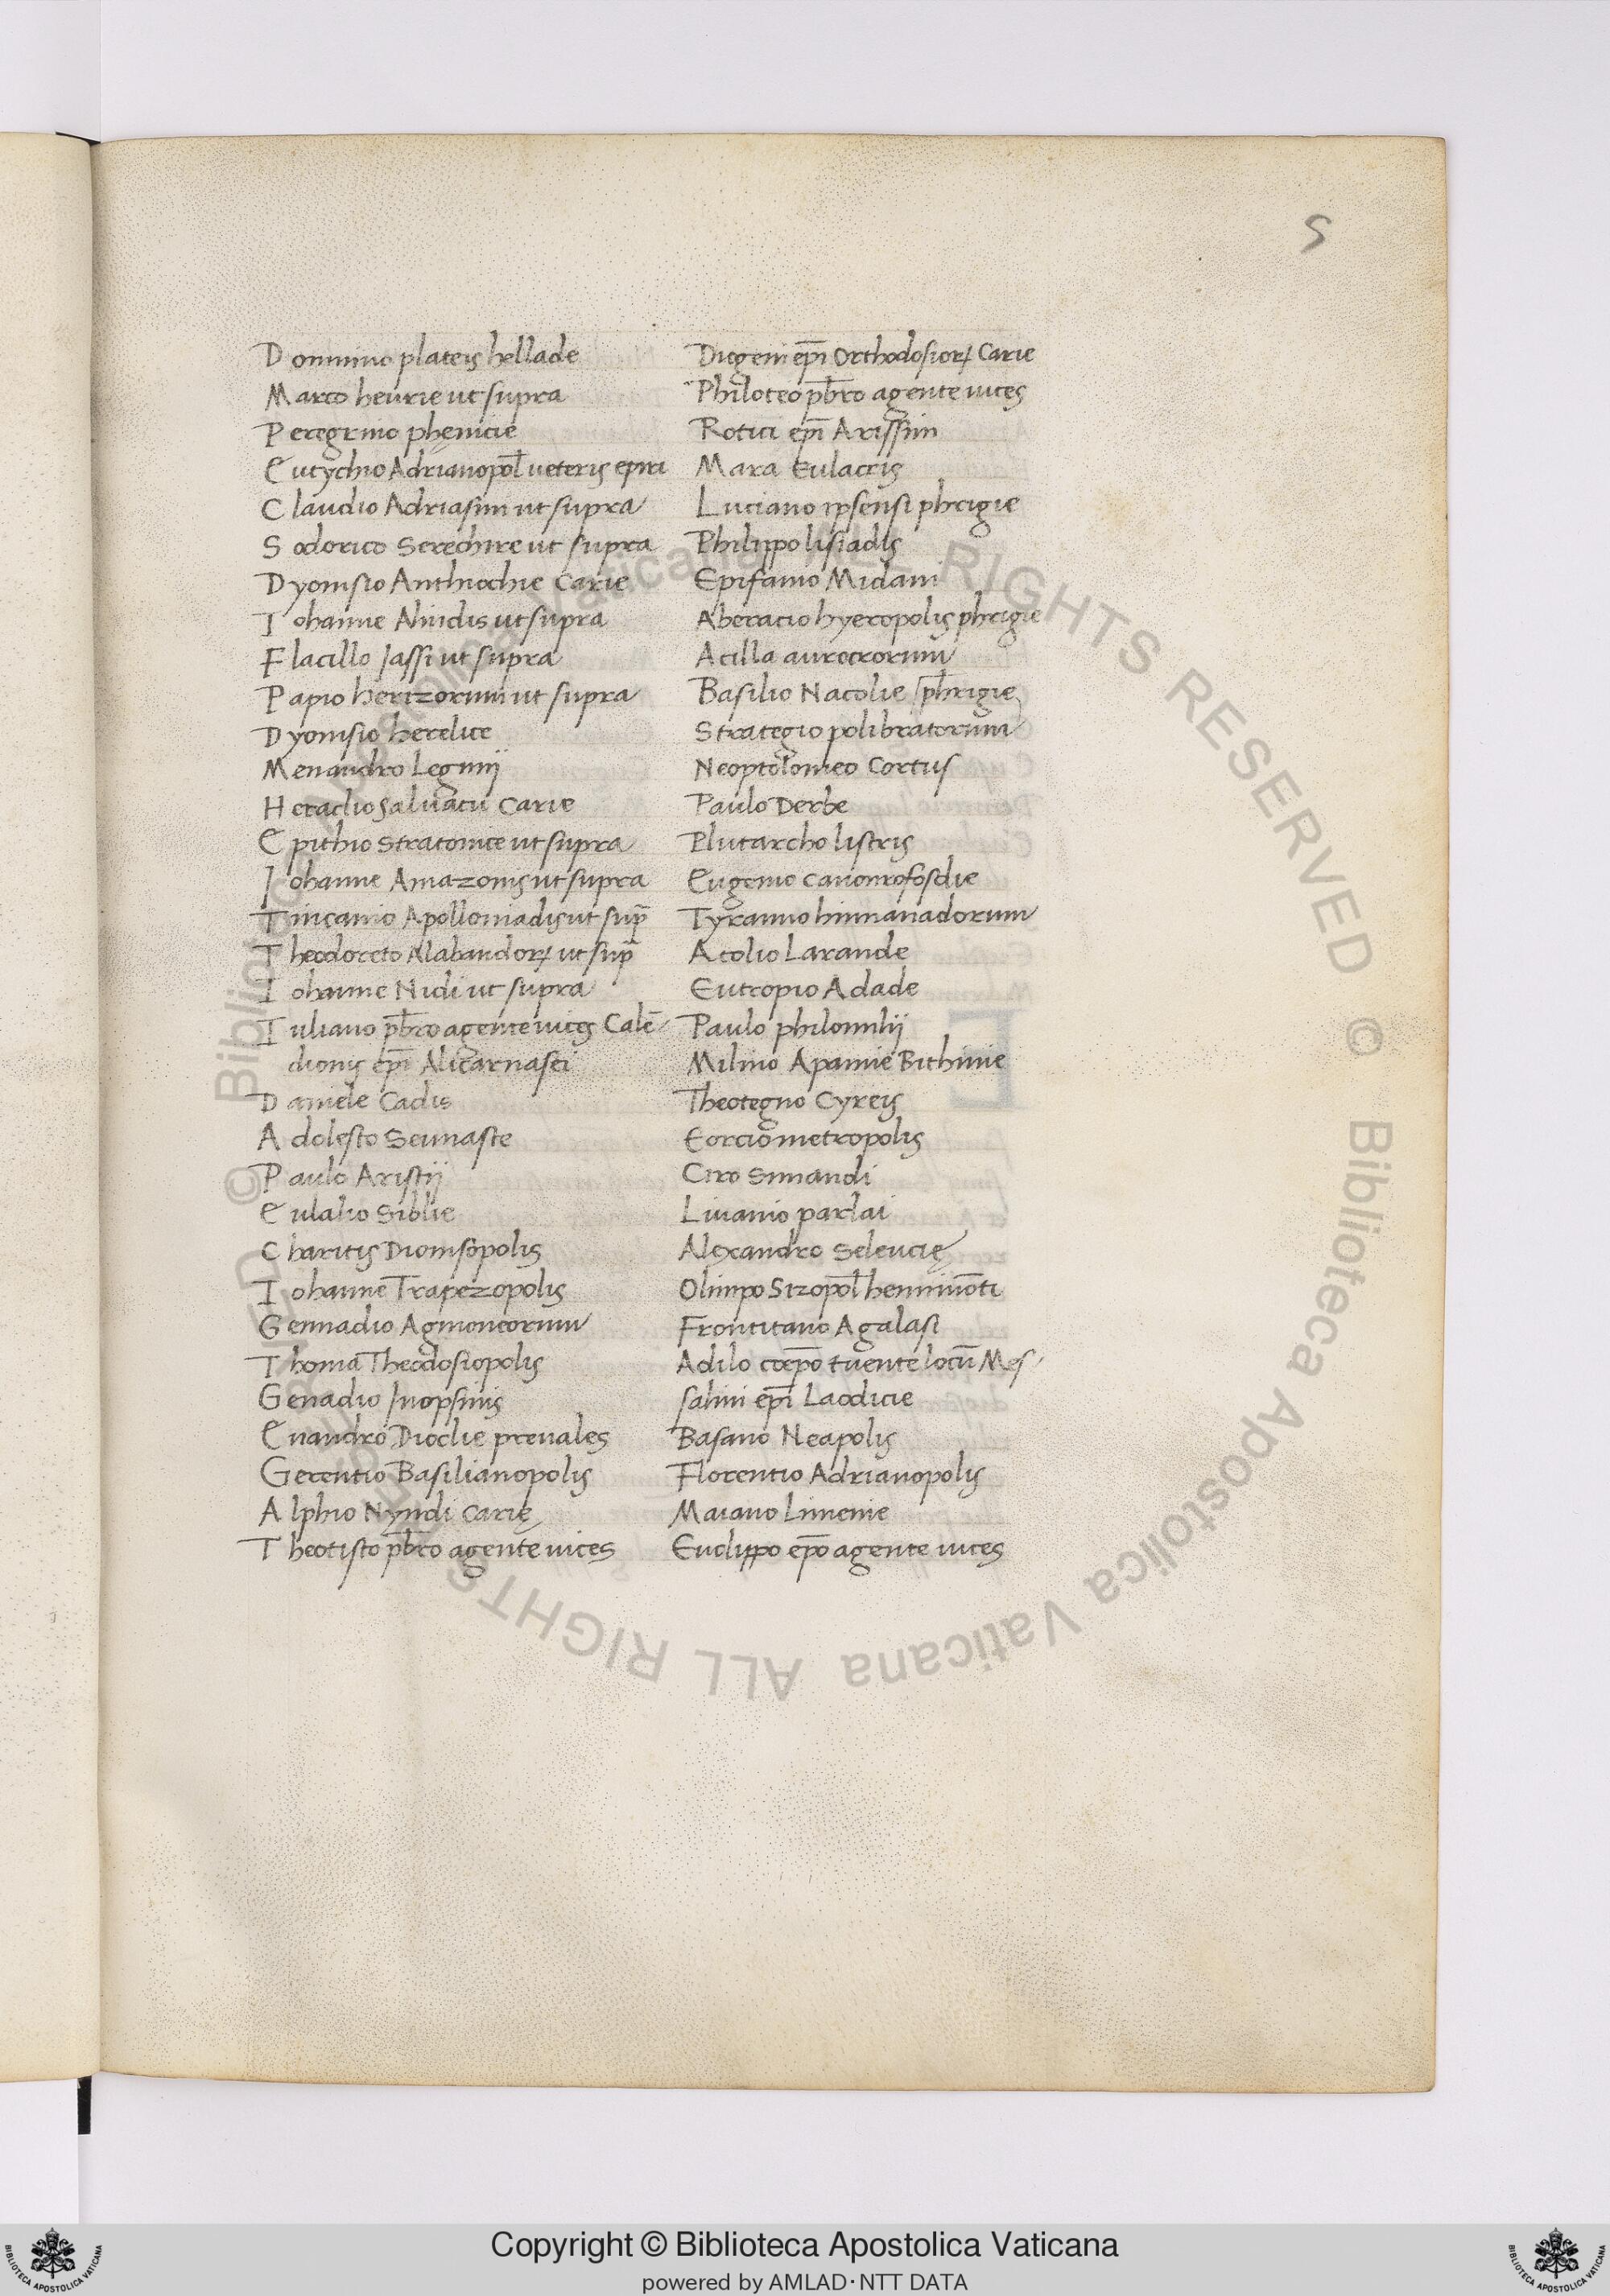 5
Domnino plateis hellade
Marco heurie ut supra
Peregrino phęnicie
Eutychio Adrianopol̄ ueteris epiri
Claudio Adriasim ut supra
Sodorico Serechire ut supra
Dyonisio Anthiochie Carie
Iohanne Alindis ut supra
Flacillo Jassi ut supra
Papio herizorum ut supra
Dyonisio herelice
Menandro Legmij
Heraclio Saluacii Carie
Epithio Stratonice ut supra
Johanne Amazonis ut supra
Tinçanio Apolloniadis ut sup̄
Theodoreto Alabandoꝝ ut sup̄
Iohanne Nidi ut supra
Iuliano p̄bro agente uices Calē
dionis ep̄i Alicarnasei
Daniele Cadis
Adolesto Seunaste
Paulo Aristij
Eulalio Siblie
Charitis Dionisopolis
Iohanne Trapezopolis
Gennadio Agmoneorum
Thoma Theodosiopolis
Genadio Inopsinis
Euandro Dioclie preuales
Gerentio Basilianopolis
Alphio Nyndi Carię
Theotisto p̄bro agente uices
Diogeni ep̄i Orthodosioꝝ Carie
Philoteo p̄bro agente uices
Rotici ep̄i Arissim
Mara Eulacris
Luciano ipsensi phrigie
Philippo lisiadis
Epifanio Midani
Aberacio hyeropolis phrigie
Acilla aurocrorum
Basilio Nacolie phrigie
Strategio polibratorum
Neoptolomeo Cortus
Paulo Derbe
Plutarcho listris
Eugenio canonrofosdie
Tyranno hinmanadorum
Acolio Larande
Eutropio Adade
Paulo philomilij
Milino Apamie Bithinie
Theotegno Cyreis
Eorcio metropolis
Ciro Sinnandi
Liuanio parlai
Alexandro Seleucię
Olimpo Sizopol̄ henniinōti
Frontitano Agalasi
Adilo coep̄o tuente locū Mes
salini ep̄i Laodicie
Basano Neapolis
Florentio Adrianopolis
Maiano Limenie
Euclippo ep̄o agente uices
© Biblioteca Apostolica Vaticana ALL RIGHTS RESERVED
Copyright © Biblioteca Apostolica Vaticana
powered by AMLAD·NTT DATA